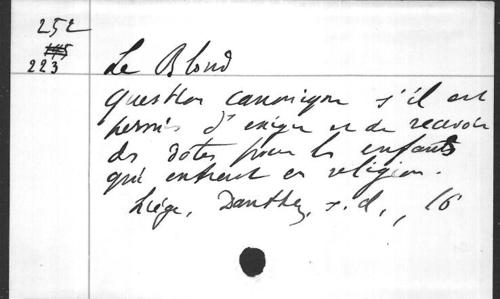 252
223
Le Blond
Question canonique s'il est
permis d'exiger et de recevoir
des dotes pour les enfants
qui entrent en religion.
Liége, Danthez, s.d., 16